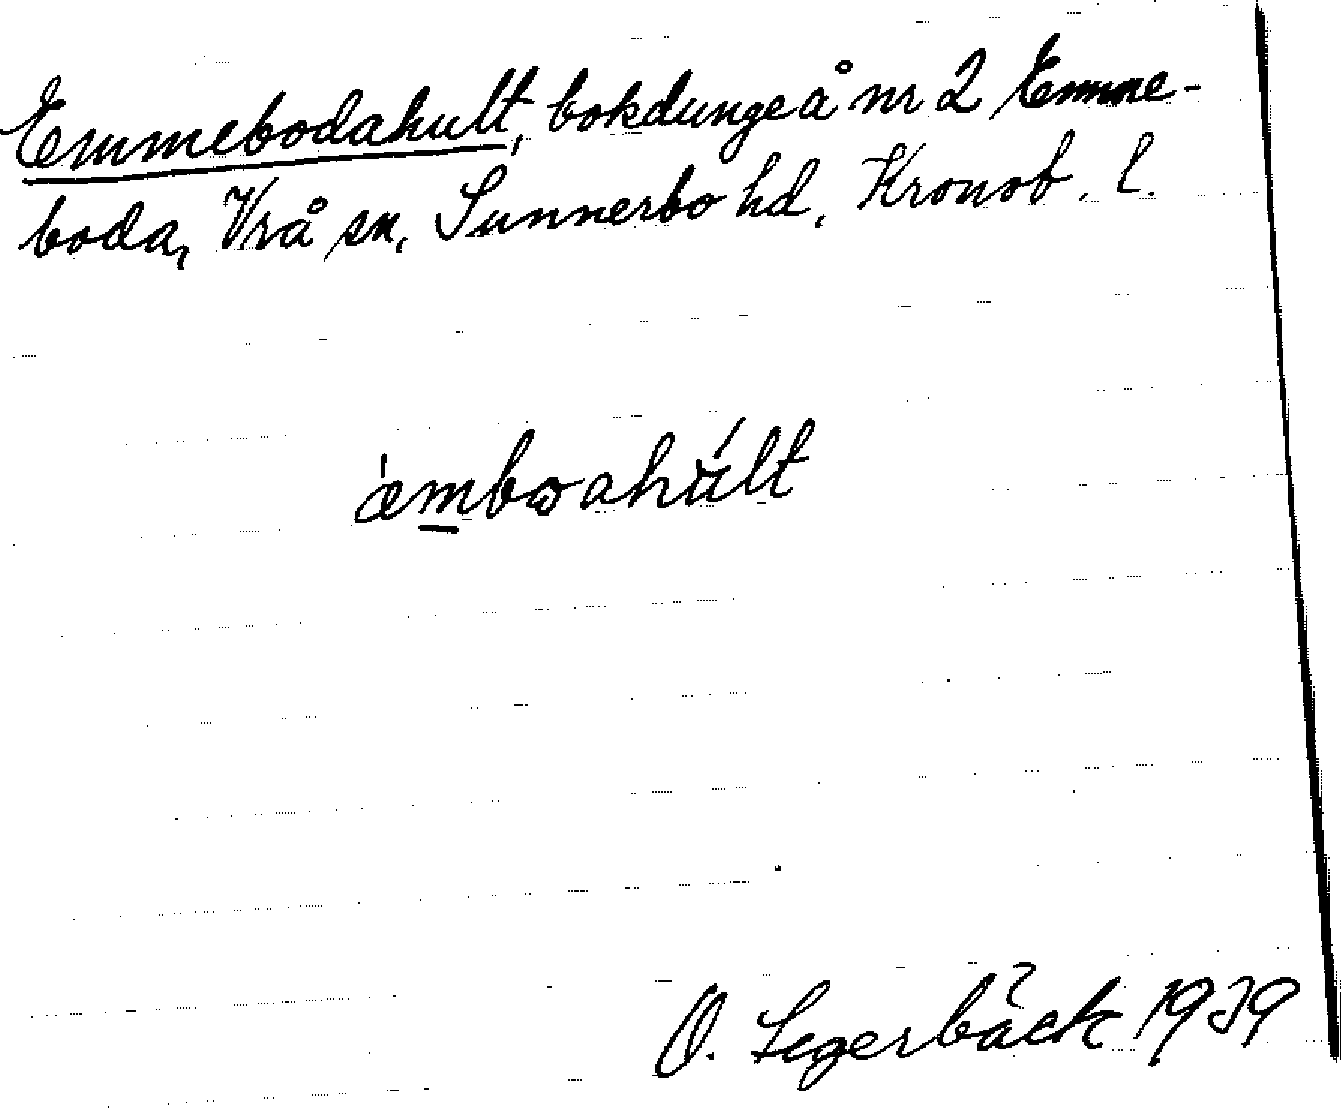 Emmebodahult, bokdunge å nr 2 Emme-
boda, Vrå sn, Sunnerbo hd, Kronob. l.
æmbωahult
O. Segerbäck 1939